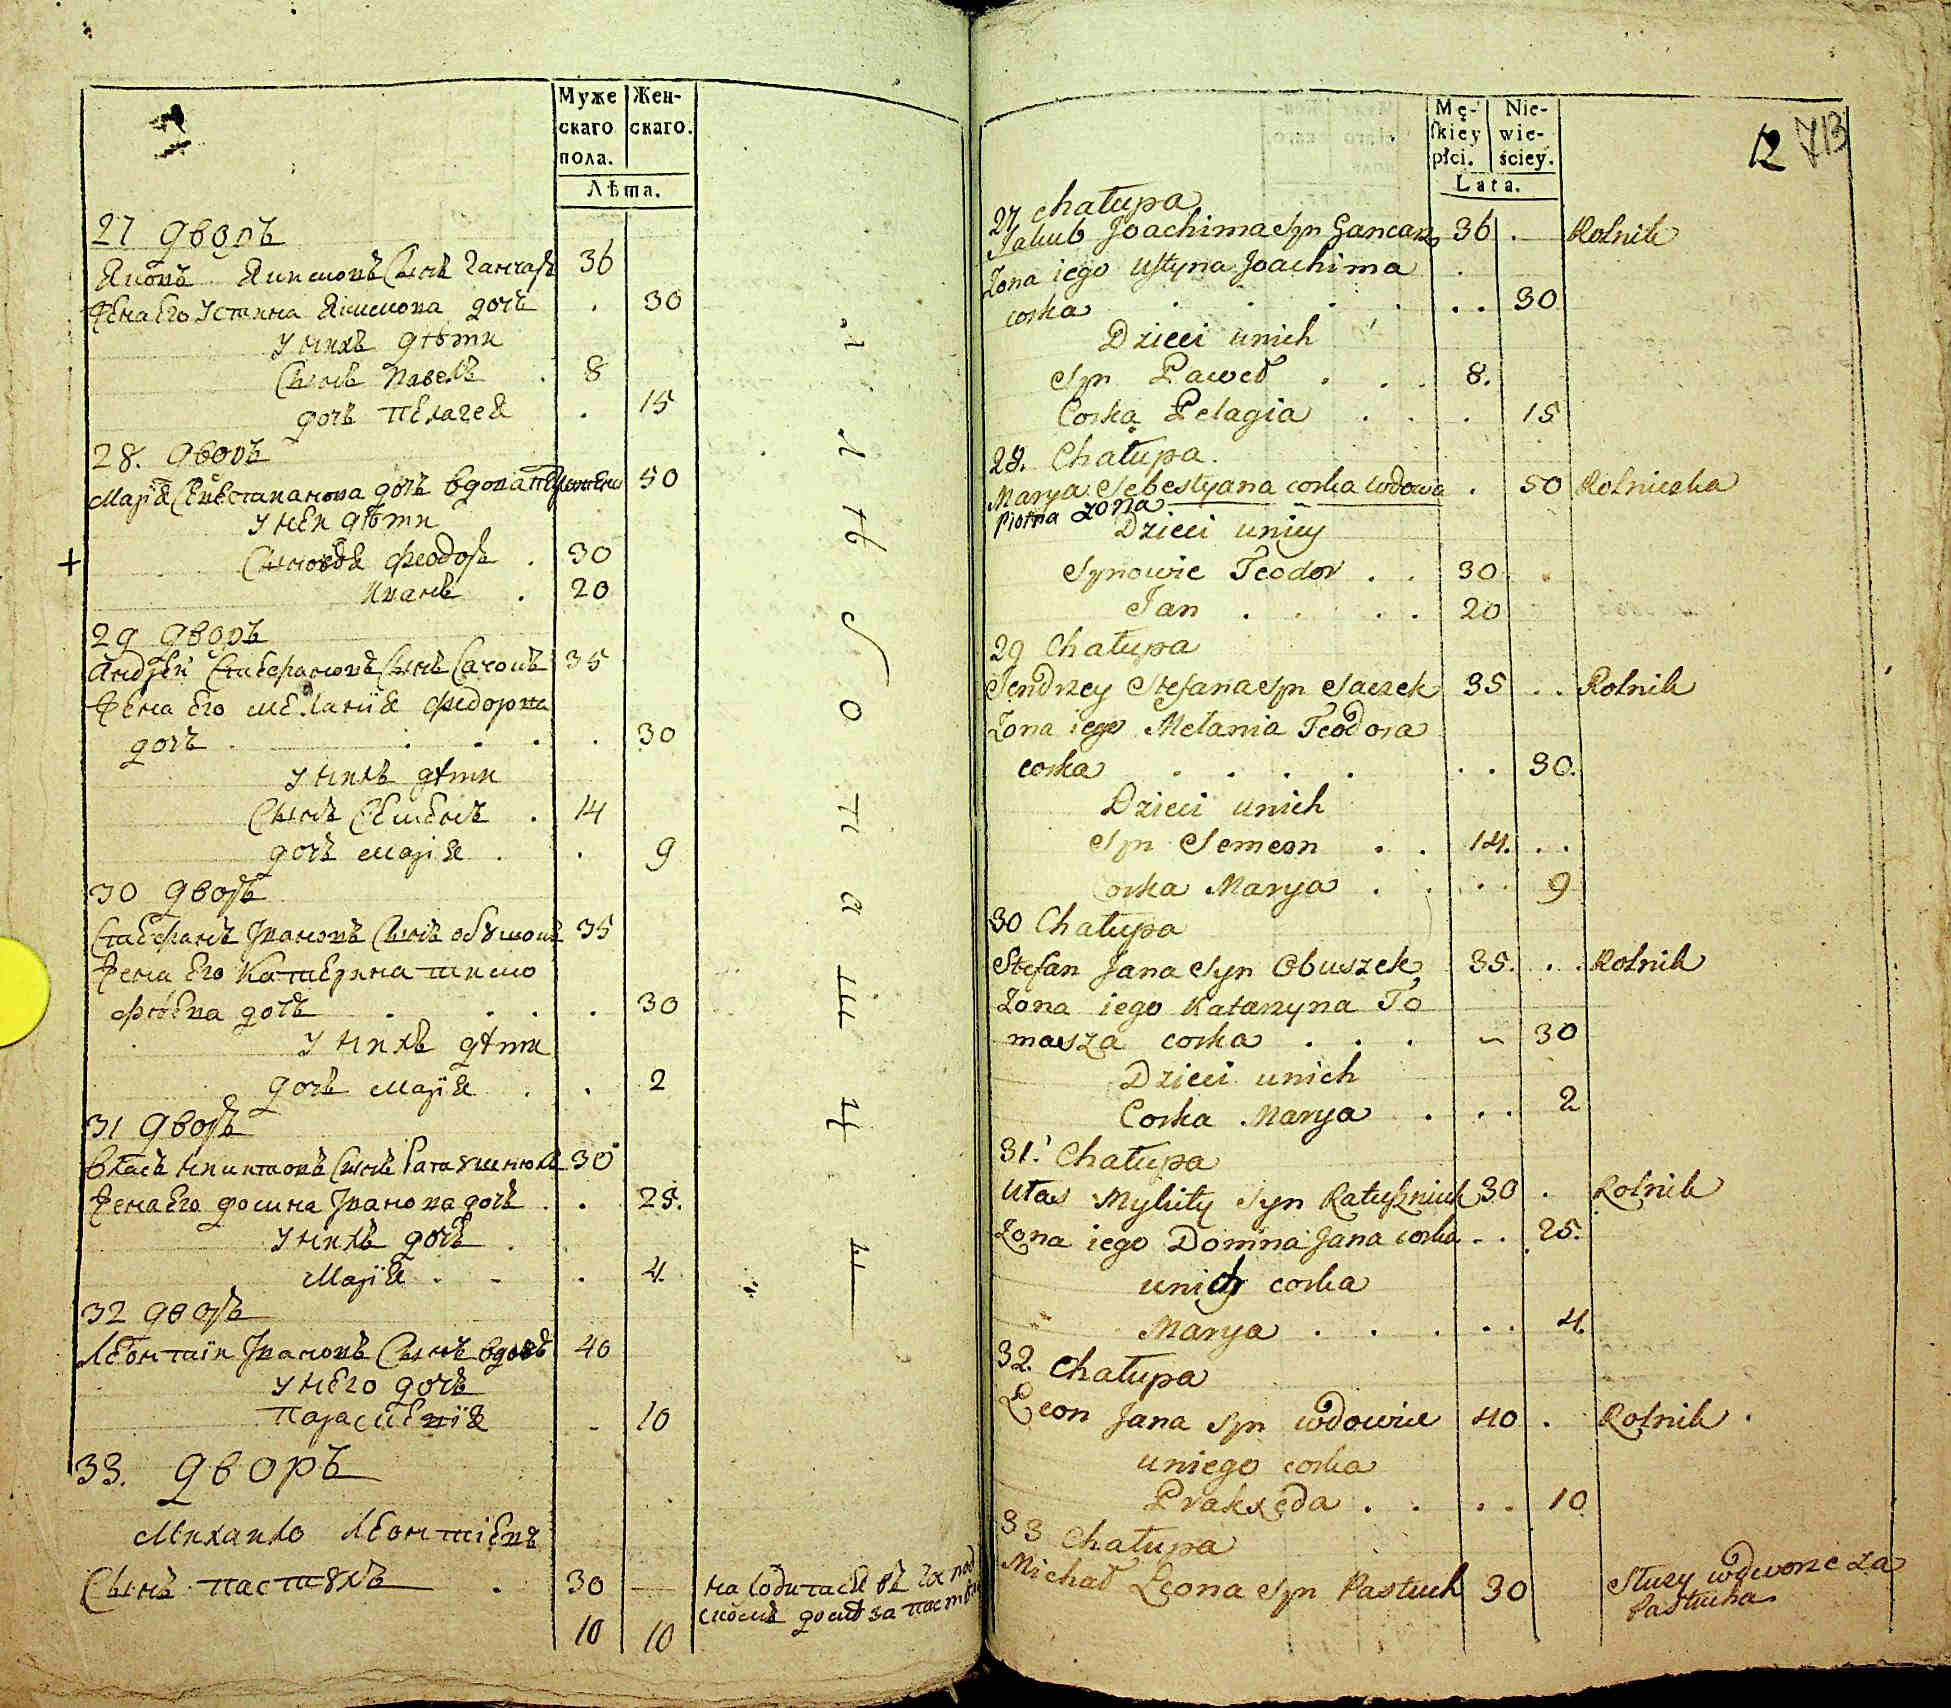 Муже
скаго
пола.
Жен-
скаго.
Лѣта.
27 дворъ
Яковъ Якимовъ Сынъ Ганчаръ 36
Жена Его Устина Якимова дочь . 30
У нихъ дѣти
Сынъ Павелъ . 8
дочь Пелагея . 15
28. дворъ
Марїя Севастианова дочь вдова 50
У ней дѣти
Сыновья Феодоръ . 30
Иванъ . 20
29 дворъ
Андрей Стефановъ Сынъ Сачокъ 35
Жена Его Меланїя Федорова
дочь . . . . . 30
У нихъ дѣти
Сынъ Семенъ . 14
дочь Марїя . . 9
30 дворъ
Стефанъ Ивановъ Сынъ Обушокъ 35
Жена Его Катерина Тимо
фѣева дочь . . . . 30
У нихъ дѣти
дочь Марїя . . 2
31 дворъ
Власъ Никитовъ Сынъ Ратушнюкъ 30
Жена Его Домна Иванова дочь . . 25.
У нихъ дочь .
Марїя . - . 4.
32 дворъ
Леонтїй Ивановъ Сынъ вдовъ 40
У него дочь
Параскевїя . 10
33. дворъ
Михайло Леонтїевъ
Сынъ пастухъ . 30 —
находится въ Господ
скомъ домѣ за пастуха
10 10
12 713
Mę-
ſkiey
płci.
Nie-
wie-
ściey.
Lata.
27 Chałupa
Jakub Joachima Syn Gancarz 36 . Rolnik
Żona iego Ustyna Joachima .
corka . . . . . . 30
Dzieci unich
Syn Paweł . . . 8.
Corka Pelagia . . . 15
28. Chałupa.
Marya Sebestyana corka wdowa . 50 Rolniczka
Piotra zona
Dzieci uniey
Synowie Teodor . . 30 .
Jan . . . . 20
29 Chałupa
Jendrzey Stefana Syn Saczek 35 . . Rolnik
Żona iego Melania Teodora
corka . . . . . . 30.
Dzieci unich
Syn Semeon . . 14. . .
Corka Marya . . . . 9
30 Chałupa
Stefan Jana Syn Obuszek 35. . . Rolnik
Żona iego Katarzyna To
masza corka . . . ~ 30
Dzieci unich
Corka Marya . . . 2
31. Chałupa
Ułas Mykity Syn Ratuszniuk 30 . Rolnik
Żona iego Domna Jana corka . . 25.
unich corka
Marya . . . . . 4.
32. Chałupa
Leon Jana Syn wdowiec 40 . Rolnik .
uniego corka
Prakseda . . . . 10
33 Chałupa
Michał Leona Syn Pastuch 30 Służy wdworze za
Pastucha